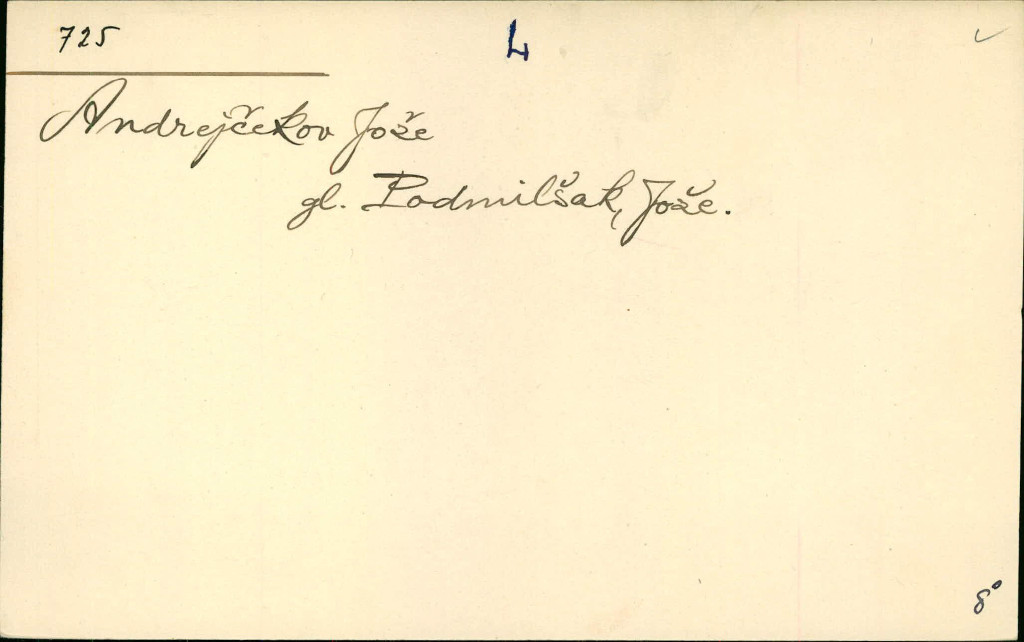 725
L
Andrejčekov Jože
gl. Podmilšak, Jože.
8°